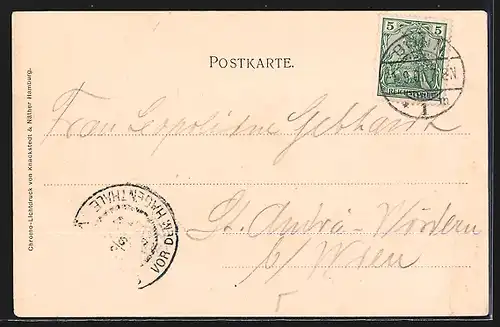 5 5
REICHSPOST
POSTKARTE.
Frau Leopoldine Gebhardt
St. Andrä-Wördern
b/ Wien
VOR DEM HAGENTHALE
1
Chromo-Lichtdruck von Knackstedt & Näther Hamburg.